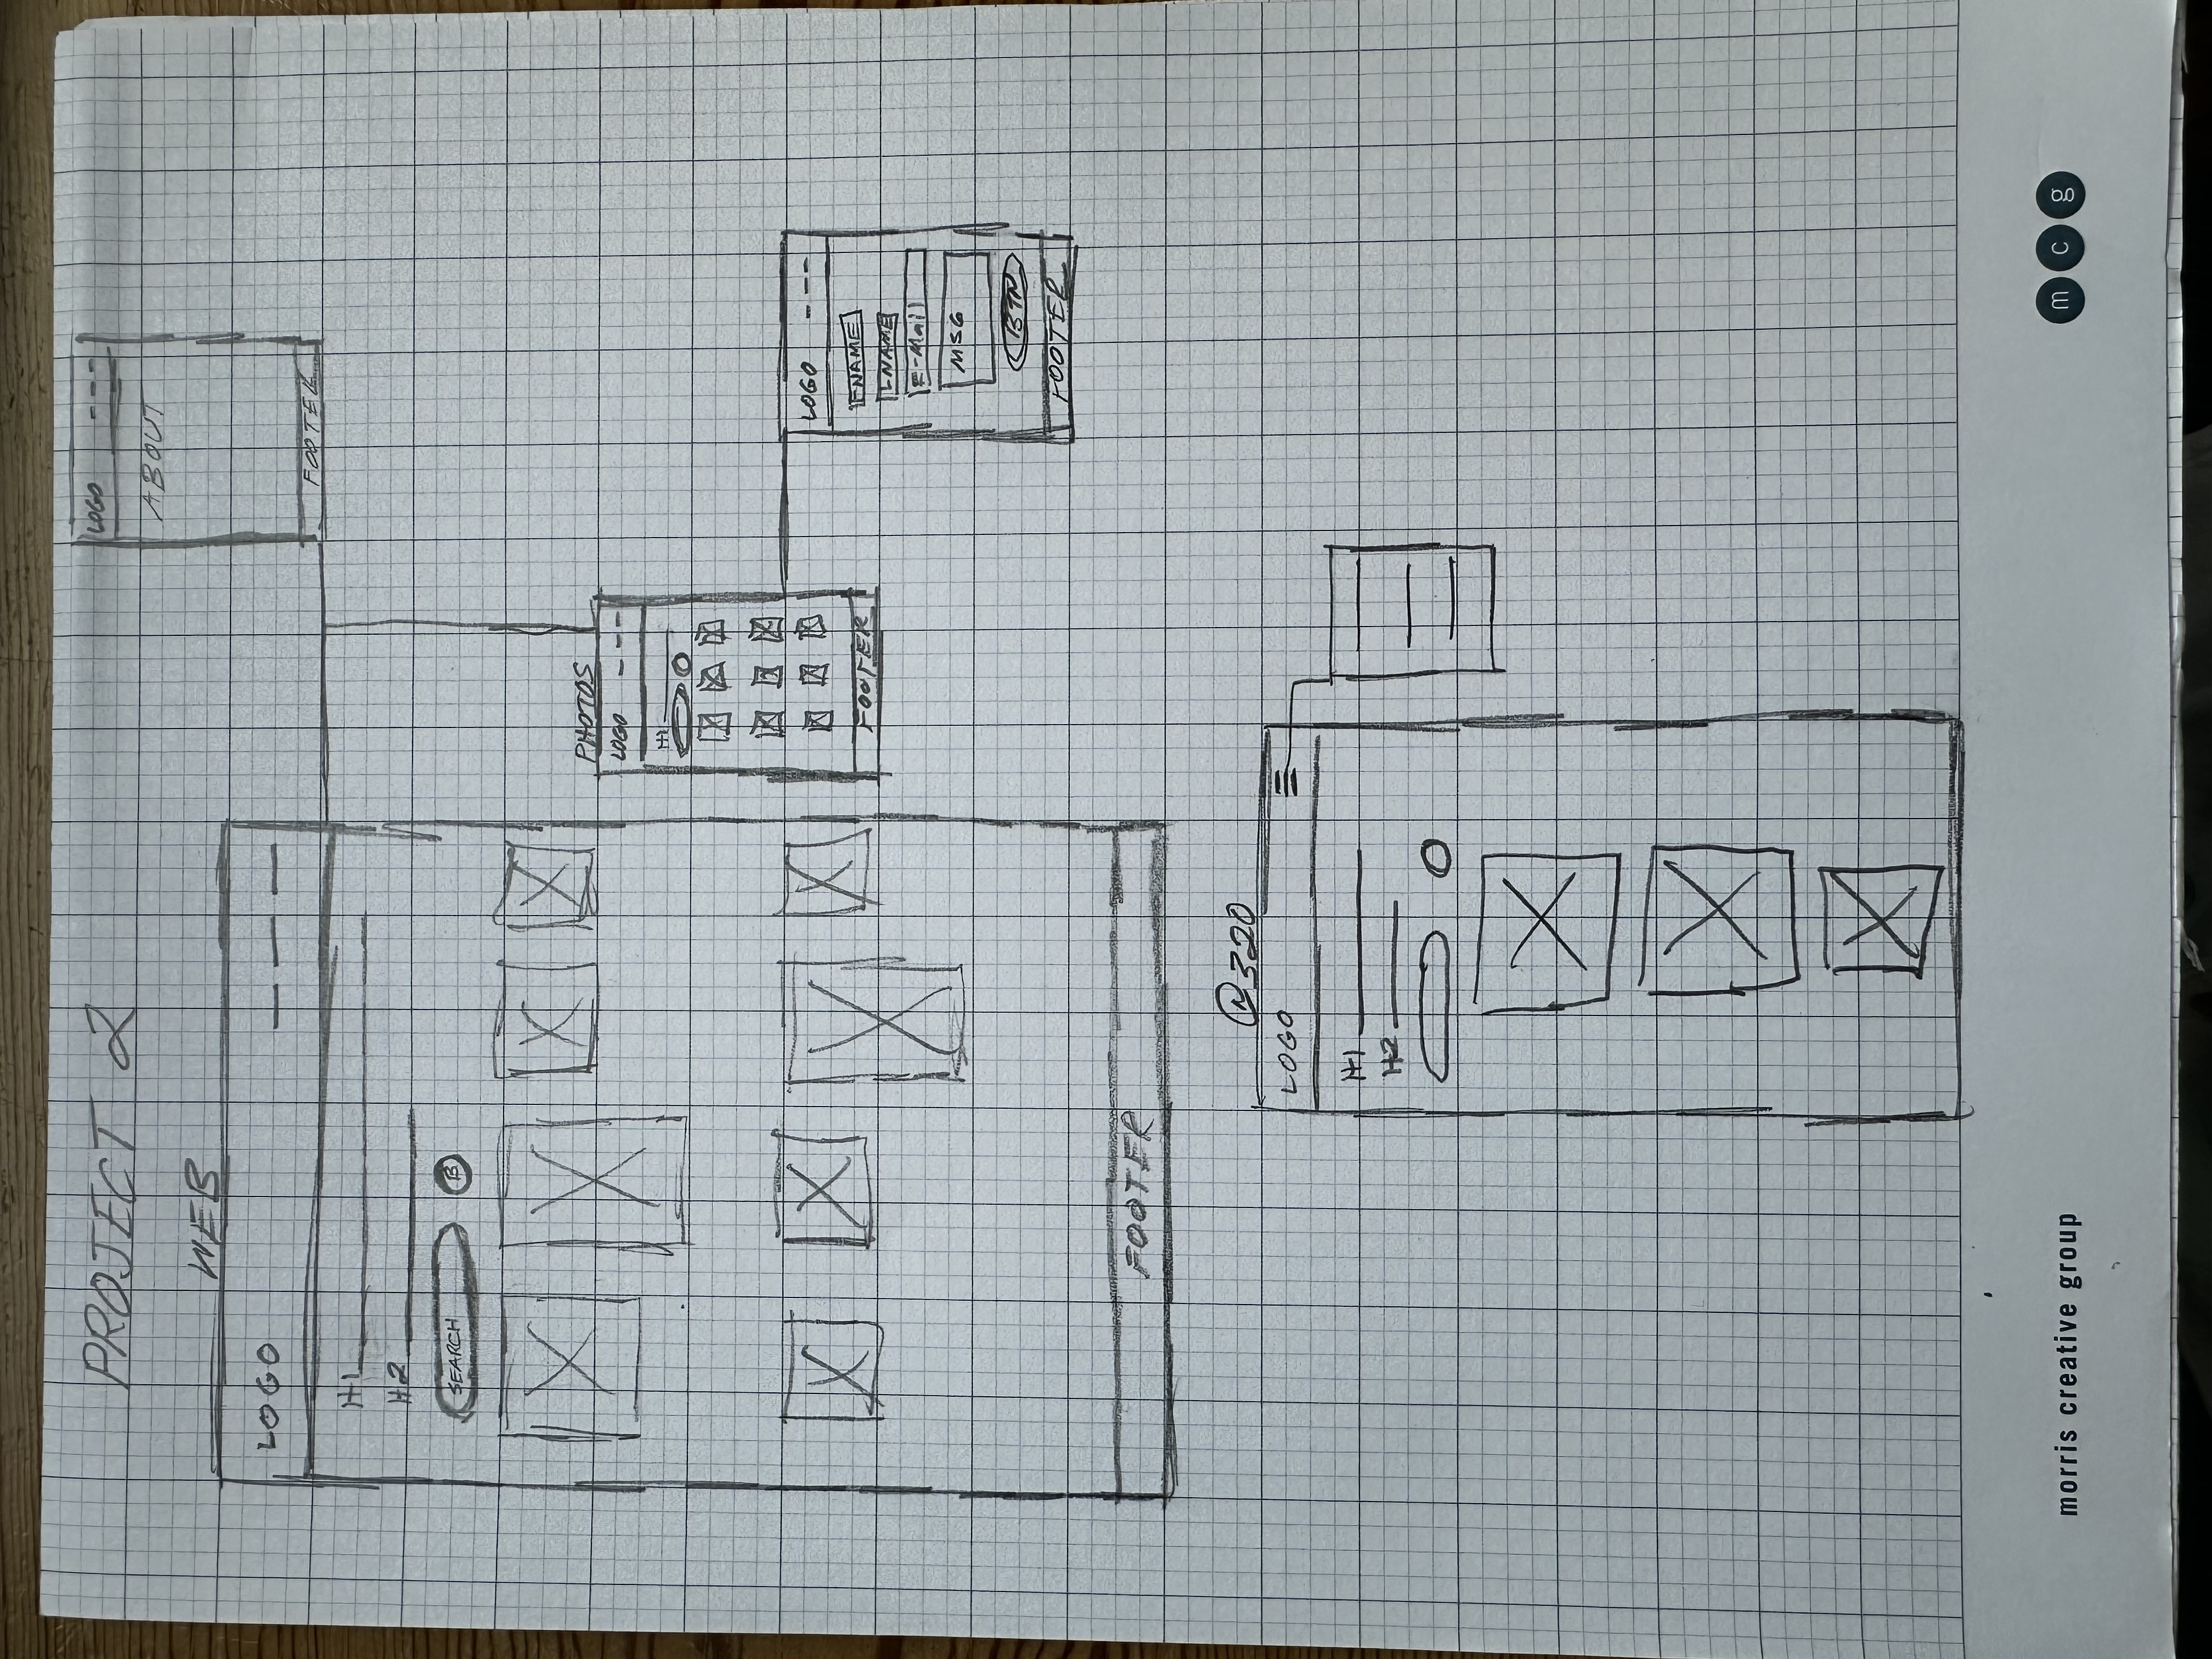 PROJECT 2
WEB
LOGO
H1
H2
SEARCH
B
FOOTER
LOGO
ABOUT
FOOTER
PHOTOS
LOGO
H1
FOOTER
LOGO
FNAME
LNAME
E-Mail
MSG
BTN
FOOTER
@320
LOGO
H1
H2
morris creative group
m c g